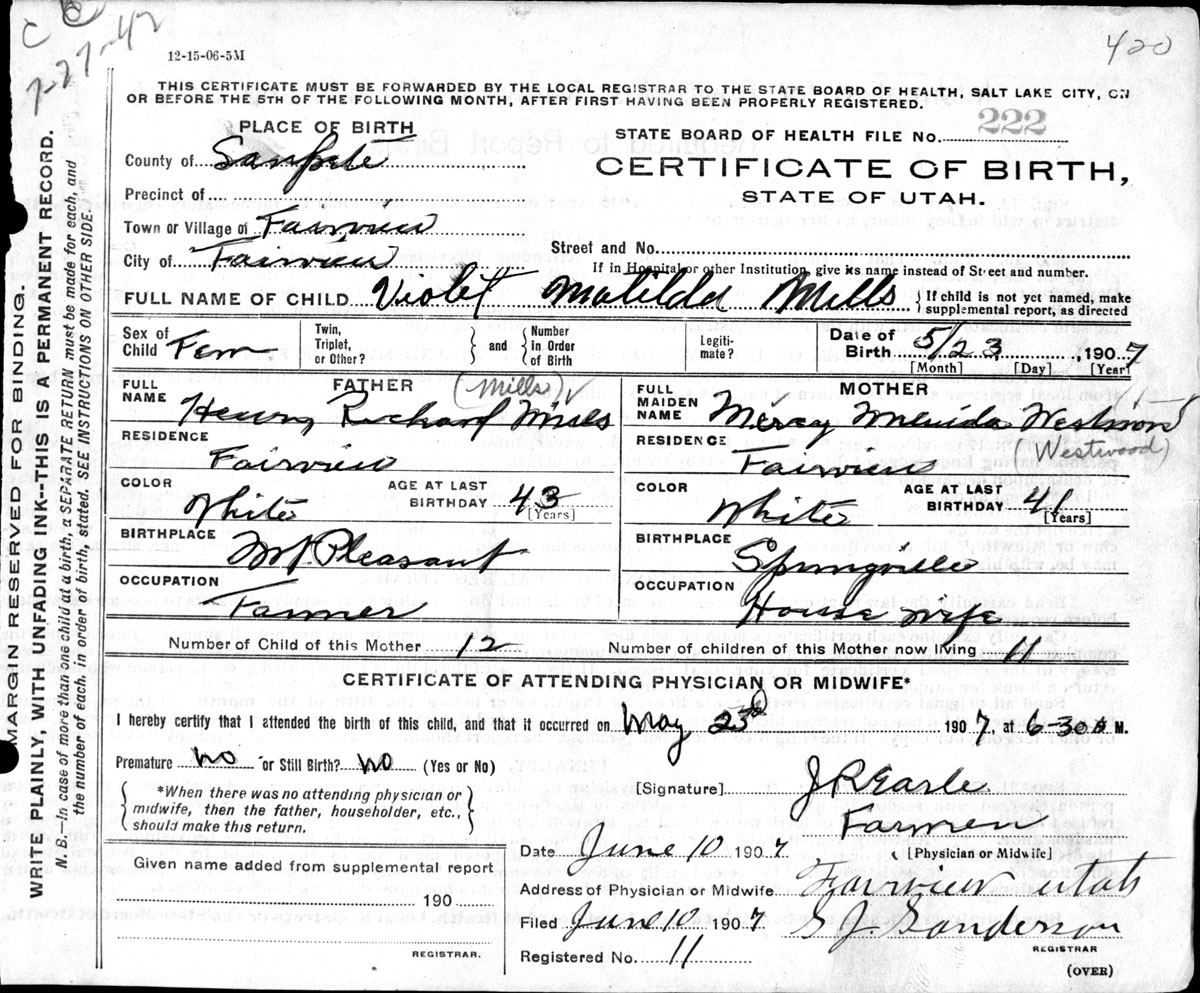 C
7-27-42
12-15-06-5M
420
THIS CERTIFICATE MUST BE FORWARDED BY THE LOCAL REGISTRAR TO THE STATE BOARD OF HEALTH, SALT LAKE CITY, ON
OR BEFORE THE 5TH OF THE FOLLOWING MONTH, AFTER FIRST HAVING BEEN PROPERLY REGISTERED.
PLACE OF BIRTH
STATE BOARD OF HEALTH FILE No. 222
County of Sanpete
CERTIFICATE OF BIRTH,
STATE OF UTAH.
Precinct of
Town or Village of Fairview
Street and No.
City of Fairview
If in Hospital or other Institution, give its name instead of Street and number.
FULL NAME OF CHILD Violet Matilda Mills { If child is not yet named, make supplemental report, as directed
Sex of Child Fem
Twin, Triplet, or Other? } and { Number in Order of Birth
Legitimate?
Date of Birth 5/23, 1907
[Month] [Day] [Year]
FATHER
(Mills)
FULL NAME Henry Richard Mills
RESIDENCE
Fairview
COLOR White
AGE AT LAST BIRTHDAY 43 [Years]
BIRTHPLACE
Mt Pleasant
OCCUPATION
Farmer
MOTHER
FULL MAIDEN NAME Mercy Westwood
(Westwood)
RESIDENCE
Fairview
COLOR White
AGE AT LAST BIRTHDAY 41 [Years]
BIRTHPLACE
Springville
OCCUPATION
House wife
Number of Child of this Mother 12
Number of children of this Mother now living 11
CERTIFICATE OF ATTENDING PHYSICIAN OR MIDWIFE*
I hereby certify that I attended the birth of this child, and that it occurred on May 23d 1907, at 6-30 M.
Premature no or Still Birth? no (Yes or No)
{ *When there was no attending physician or midwife, then the father, householder, etc., should make this return. }
[Signature] J R Earle
Date June 10 1907
[Physician or Midwife]
Given name added from supplemental report
190
REGISTRAR.
Address of Physician or Midwife Fairview Utah
Filed June 10 1907 S J Sanderson
REGISTRAR
Registered No. 11
(OVER)
MARGIN RESERVED FOR BINDING.
WRITE PLAINLY, WITH UNFADING INK--THIS IS A PERMANENT RECORD.
N. B.—In case of more than one child at a birth, a SEPARATE RETURN must be made for each, and
the number of each, in order of birth, stated. SEE INSTRUCTIONS ON OTHER SIDE.